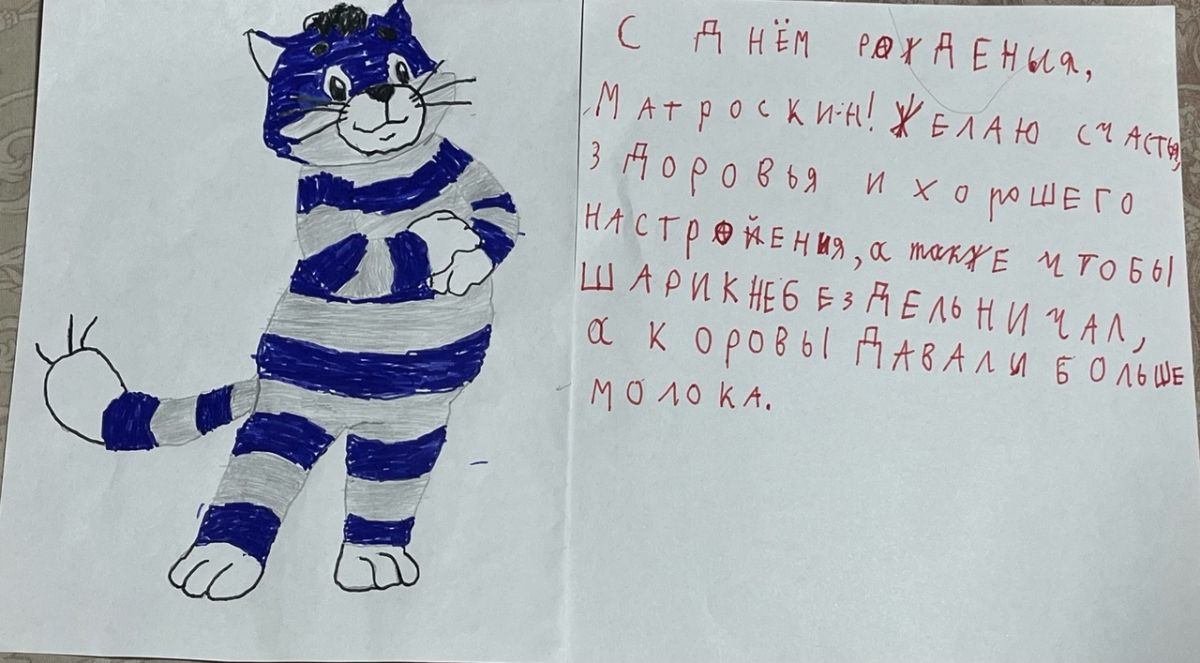 С ДНЁМ РОЖДЕНИЯ,
МАТРОСКИН! ЖЕЛАЮ СЧАСТЬЯ,
ЗДОРОВЬЯ И ХОРОШЕГО
НАСТРОЙЕНИЯ, а также ЧТОБЫ
ШАРИК НЕ БЕЗДЕЛЬНИЧАЛ,
а КОРОВЫ ДАВАЛИ БОЛЬШЕ
МОЛОКА.